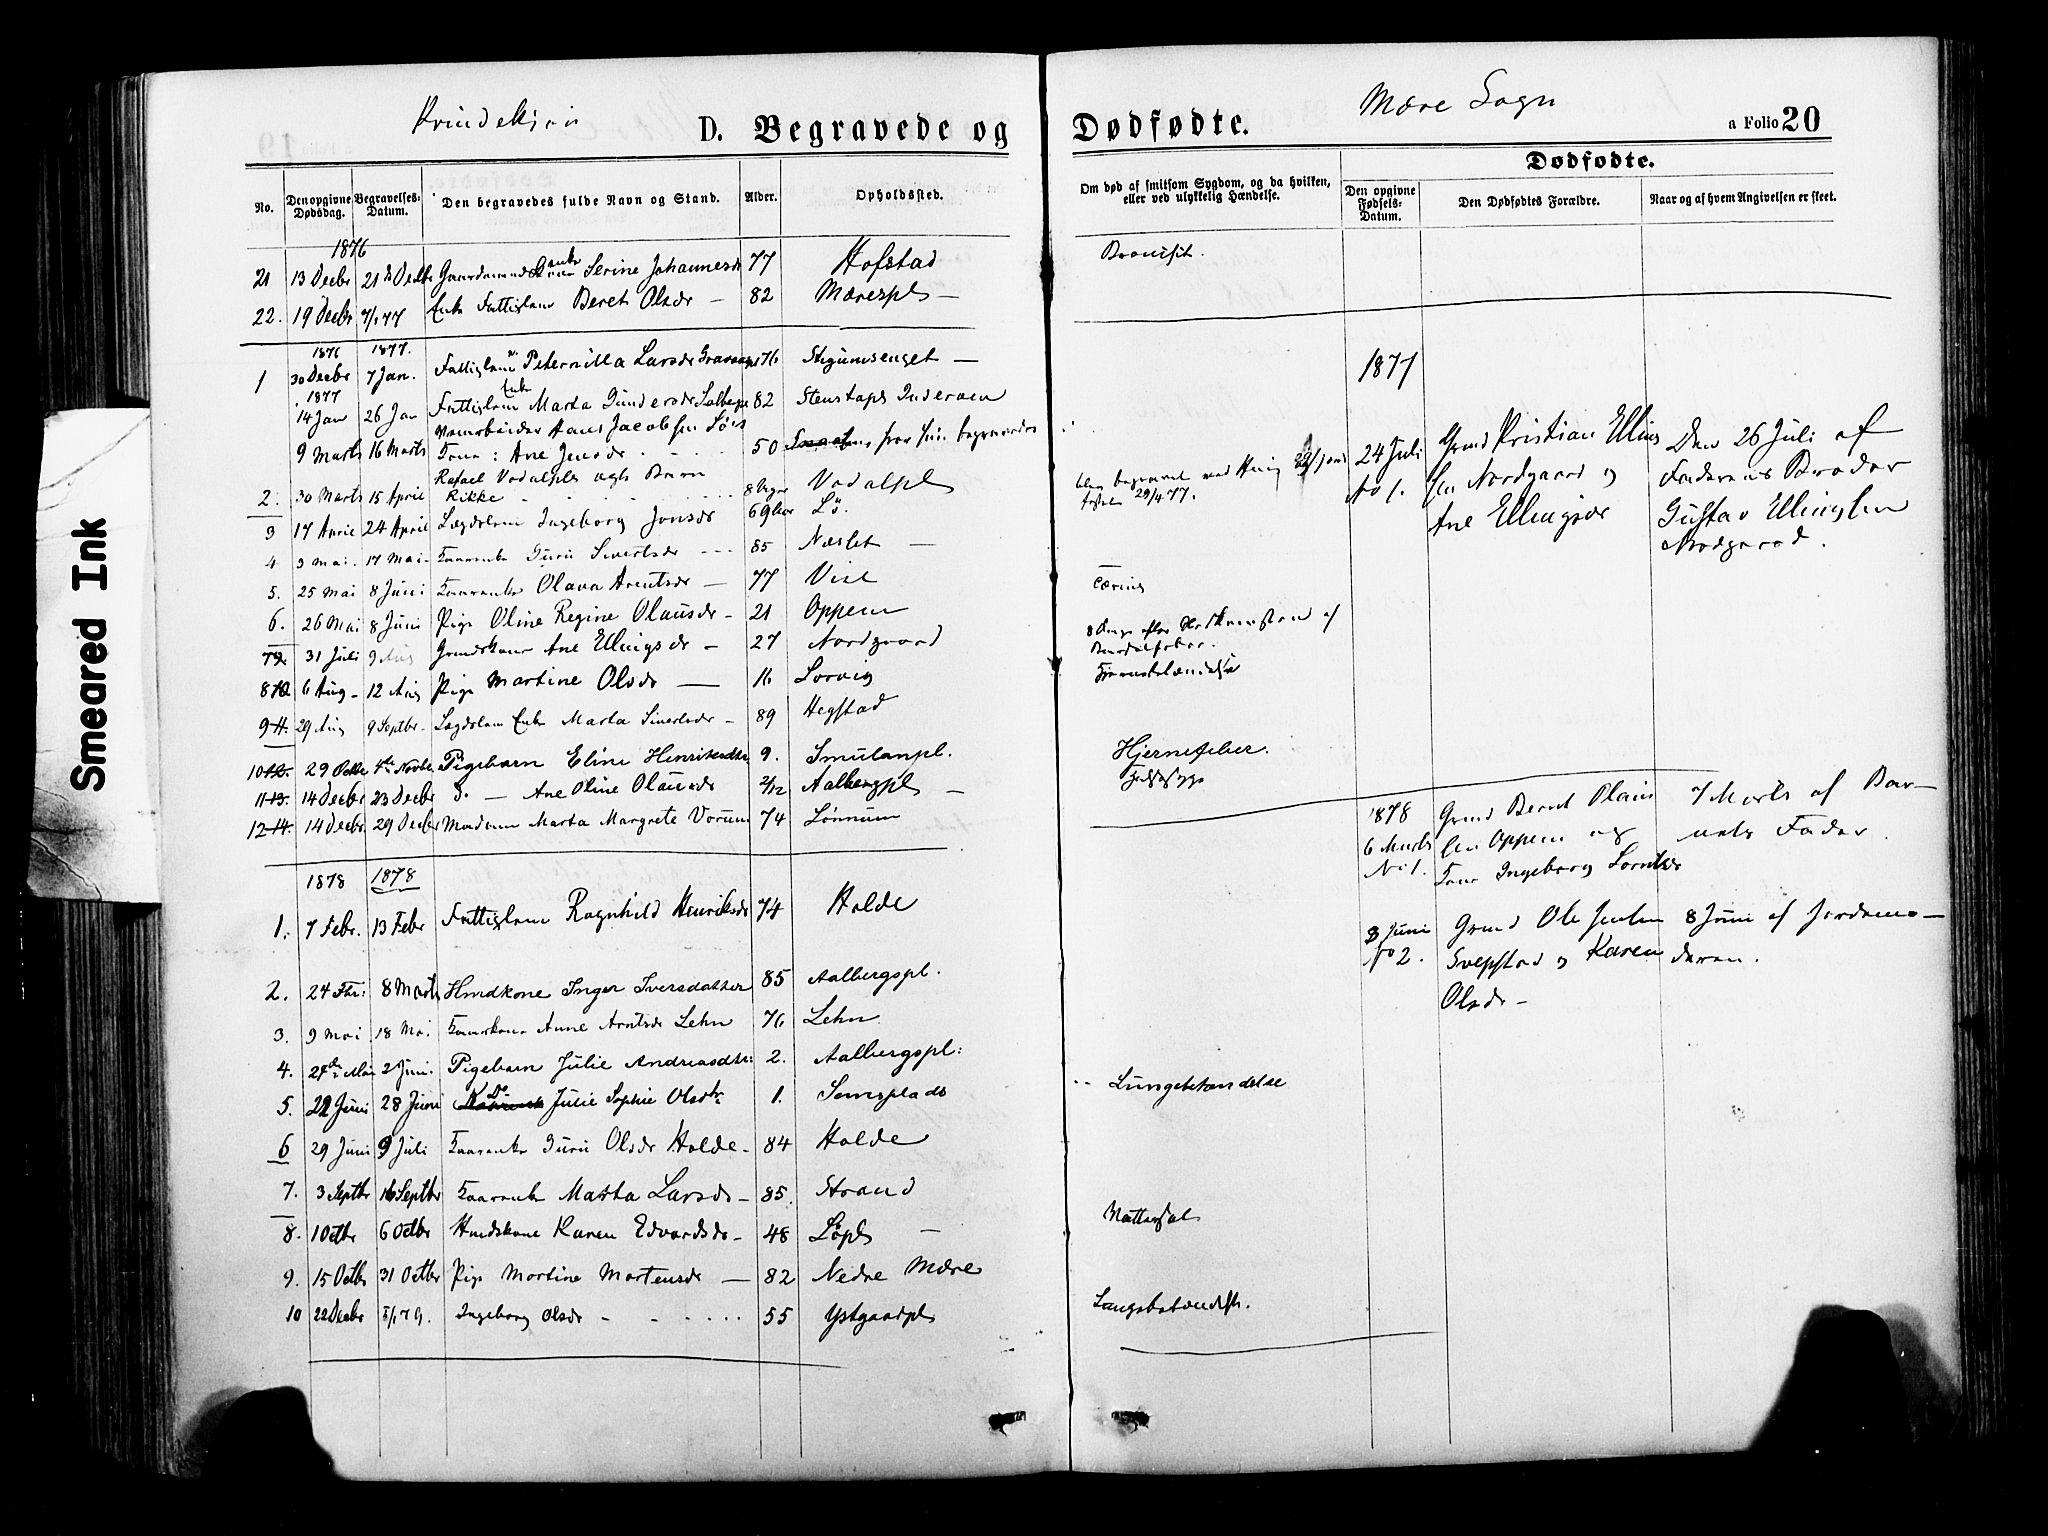 Kvindekjøn
Mære Sogn
D. Begravede og Dødfødte.
a Folio 20
Dødfødte.
No.
Den opgivne Dødsdag.
Begravelses-Datum.
Den begravedes fulde Navn og Stand.
Alder.
Opholdssted.
Om død af smitsom Sygdom, og da hvilken, eller ved ulykkelig Hændelse.
Den opgivne Fødsels-Datum.
Den Dødfødtes Forældre.
Naar og af hvem Angivelsen er skeet.
1876
21 13 Decbr 21 Decbr Gaardmands Enke Serine Johannesdr 77 Hofstad
22. 19 Decbr 7/1 77 Enke Fattiglem Beret Olsdr — 82 Mærespl —
1876 1877.
1 30 Decbr 7 Jan. Fattiglem Peternilla Larsdr 76
1877
14 Jan 26 Jan Fattiglem Enke Marta Gundersdr 82 Inderøen
9 Marts 16 Marts Hans Jacobsen Kone: Ane Jensdr 50
2. 30 Marts 15 April Rafael Vodalspl Barn Rikke 8 Vodalspl
3 17 April 24 April Lægdslem Ingeborg Jonsdr 69 Lø.
4 9 Mai. 17 Mai. Kaarenke Guru Sivertsdr 85 Næslet —
5. 25 Mai 8 Juni Kaarenke Olava Arntsdr — 77 Vist
6. 26 Mai 8 Juni Pige Oline Regine Olausdr — 21 Oppem
31 Juli 9 Aug Grmdskone Ane Ellingsdr — 27 Nordgaard
8 10 6 Aug 12 Aug Pige Martine Olsdr — 16 Lorvig
9 11. 29 Aug 9 Septbr Lægdslem Enke Marta Sivertsdr — 89 Hegstad
10 12. 29 Octbr 4de Novbr Pigebarn Eline Henriksdtr 9. Smulanpl.
11 13. 14 Decbr 23 Decbr D. — Ane Oline Olausdr 2/12 Aalbergpl —
12 14. 14 Decbr 29 Decbr Madam Marta Margrete Vorum 74 Lønnum
1878 1878
1. 7 Febr. 13 Febr Fattiglem Ragnhild Henriksdr 74 Holde
2. 24 Fbr: 8 Marts Hmdkone Inger Iversdatter 85 Aalbergspl.
3. 9 Mai 18 Mai Kaarkone Anne Arntsdr Lehn 76 Lehn
4. 27de Mai 2 Juni. Pigebarn Julie Andreasdtr: 2. Aalbergspl:
5. 22 Juni 28 Juni Do Julie Sophie Olsdtr 1. Semsplads
6 29 Juni 9 Juli Kaarenke Guru Olsdr Holde — 84 Holde
7. 3 Septbr 16 Septbr Kaarenke Marta Larsdr — 85. Strand
8. 1 Octbr 6 Octbr Hmdskone Karen Edvardsdr — 48 Løpl —
9. 15 Octbr 31 Octbr Pige Martine Mortensdr — 82 Nedre Mære
10 22 Decbr 5/1 79. Ingeborg Olsdr — 55 Ystgaardpl
Bronchit.
begravet med
29/4 77.
8 Dage efter Nedkomsten af
Barselfeber.
Hjernefeber.
Lungebetændelse
Lungebetændelse.
1877
24 Juli No 1. Grmd Kristian Ellingsen Nordgaard og Ane Ellingsdr
Den 26 Juli af Faderens Broder Gustav Ellingsen Nordgaard.
1878
6 Marts No 1. Grmd Bernt Olaussen Oppem og Kone Ingeborg Lorntsdr
7 Marts af Barnets Fader.
3 Juni No 2. Grmd Ole Svepstad og Karen Olsdr —
8 Juni af Jordemoderen.
Smeared Ink